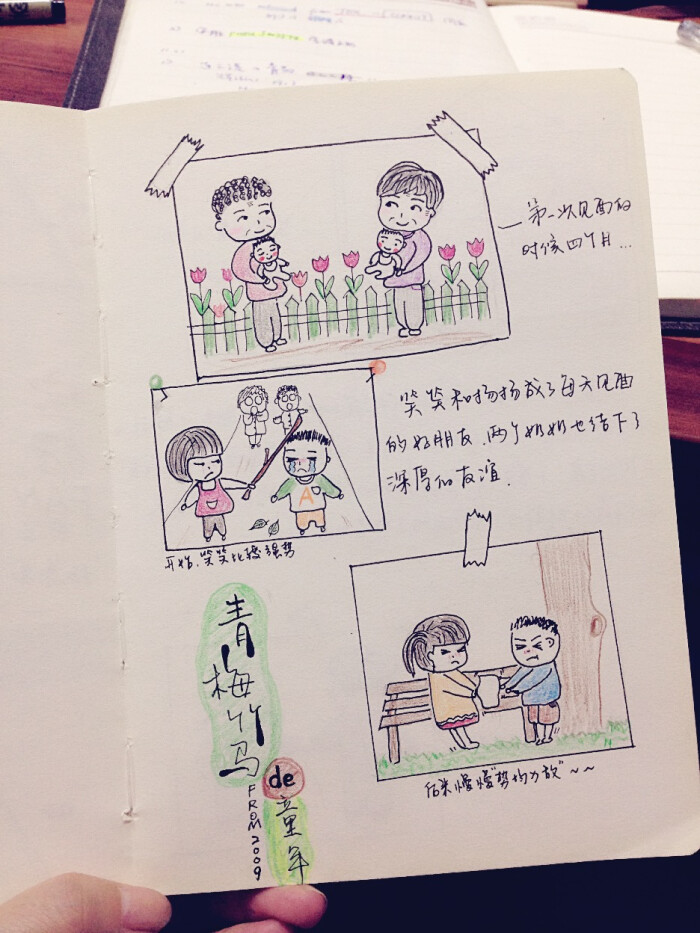 第一次见面的
时候四个月...
笑笑和扬扬成了每天见面
的好朋友、两个奶奶也结下了
深厚的友谊.
开始,笑笑比较强势
A
后来慢慢"势均力敌"~~
青梅竹马
de
童年
FROM 2009